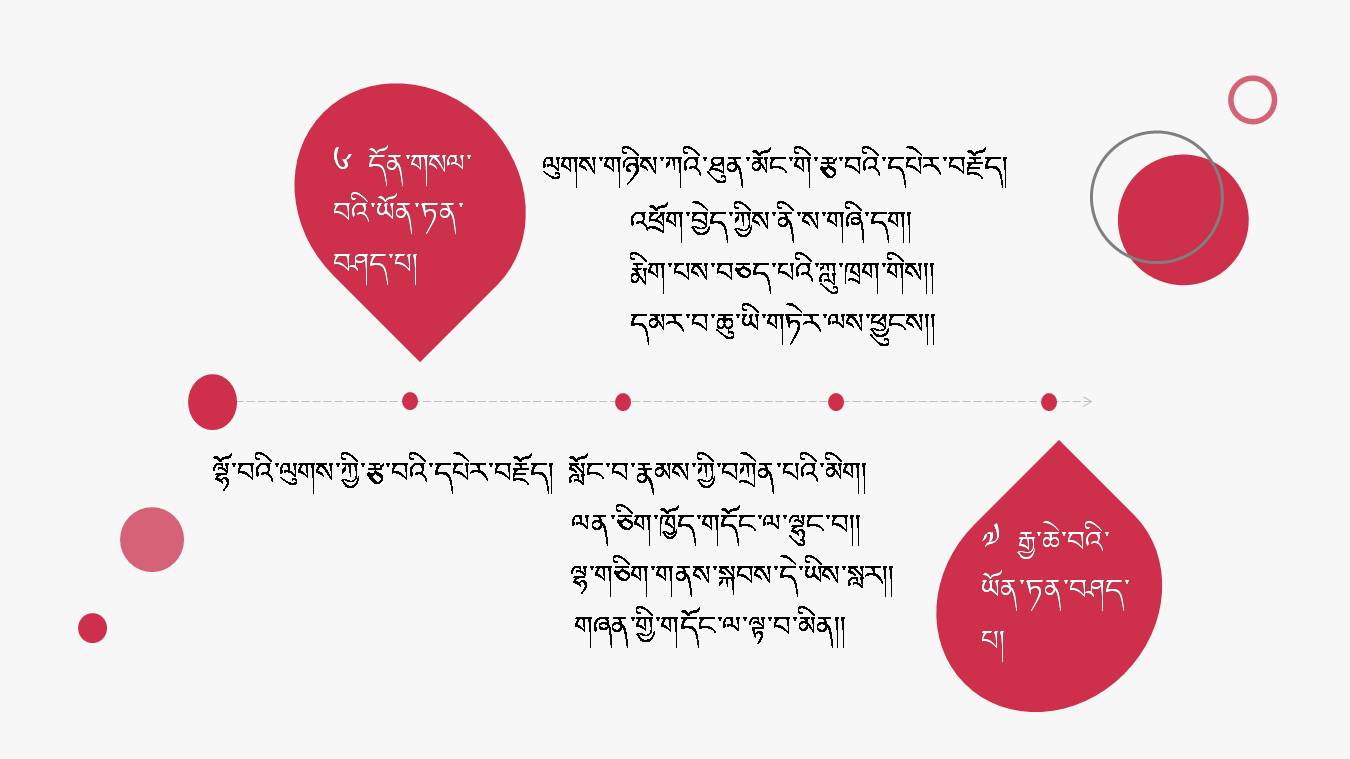 ༦ དོན་གསལ་
བའི་ཡོན་ཏན་
བཤད་པ།
ལུགས་གཉིས་ཀའི་ཐུན་མོང་གི་རྩ་བའི་དཔེར་བརྗོད།
འཕྲོག་བྱེད་ཀྱིས་ནི་ས་གཞི་དག།
རྨིག་པས་བཅད་པའི་ཀླུ་ཁྲག་གིས།།
དམར་བ་ཆུ་ཡི་གཏེར་ལས་ཕྱུངས།།
ལྷོ་བའི་ལུགས་ཀྱི་རྩ་བའི་དཔེར་བརྗོད། སློང་བ་རྣམས་ཀྱི་བཀྲེན་པའི་མིག།
ལན་ཅིག་ཁྱོད་གདོང་ལ་ལྷུང་བ།།
ལྷ་གཅིག་གནས་སྐབས་དེ་ཡིས་སླར།།
གཞན་གྱི་གདོང་ལ་ལྟ་བ་མིན།།
༧ རྒྱ་ཆེ་བའི་
ཡོན་ཏན་བཤད་
པ།